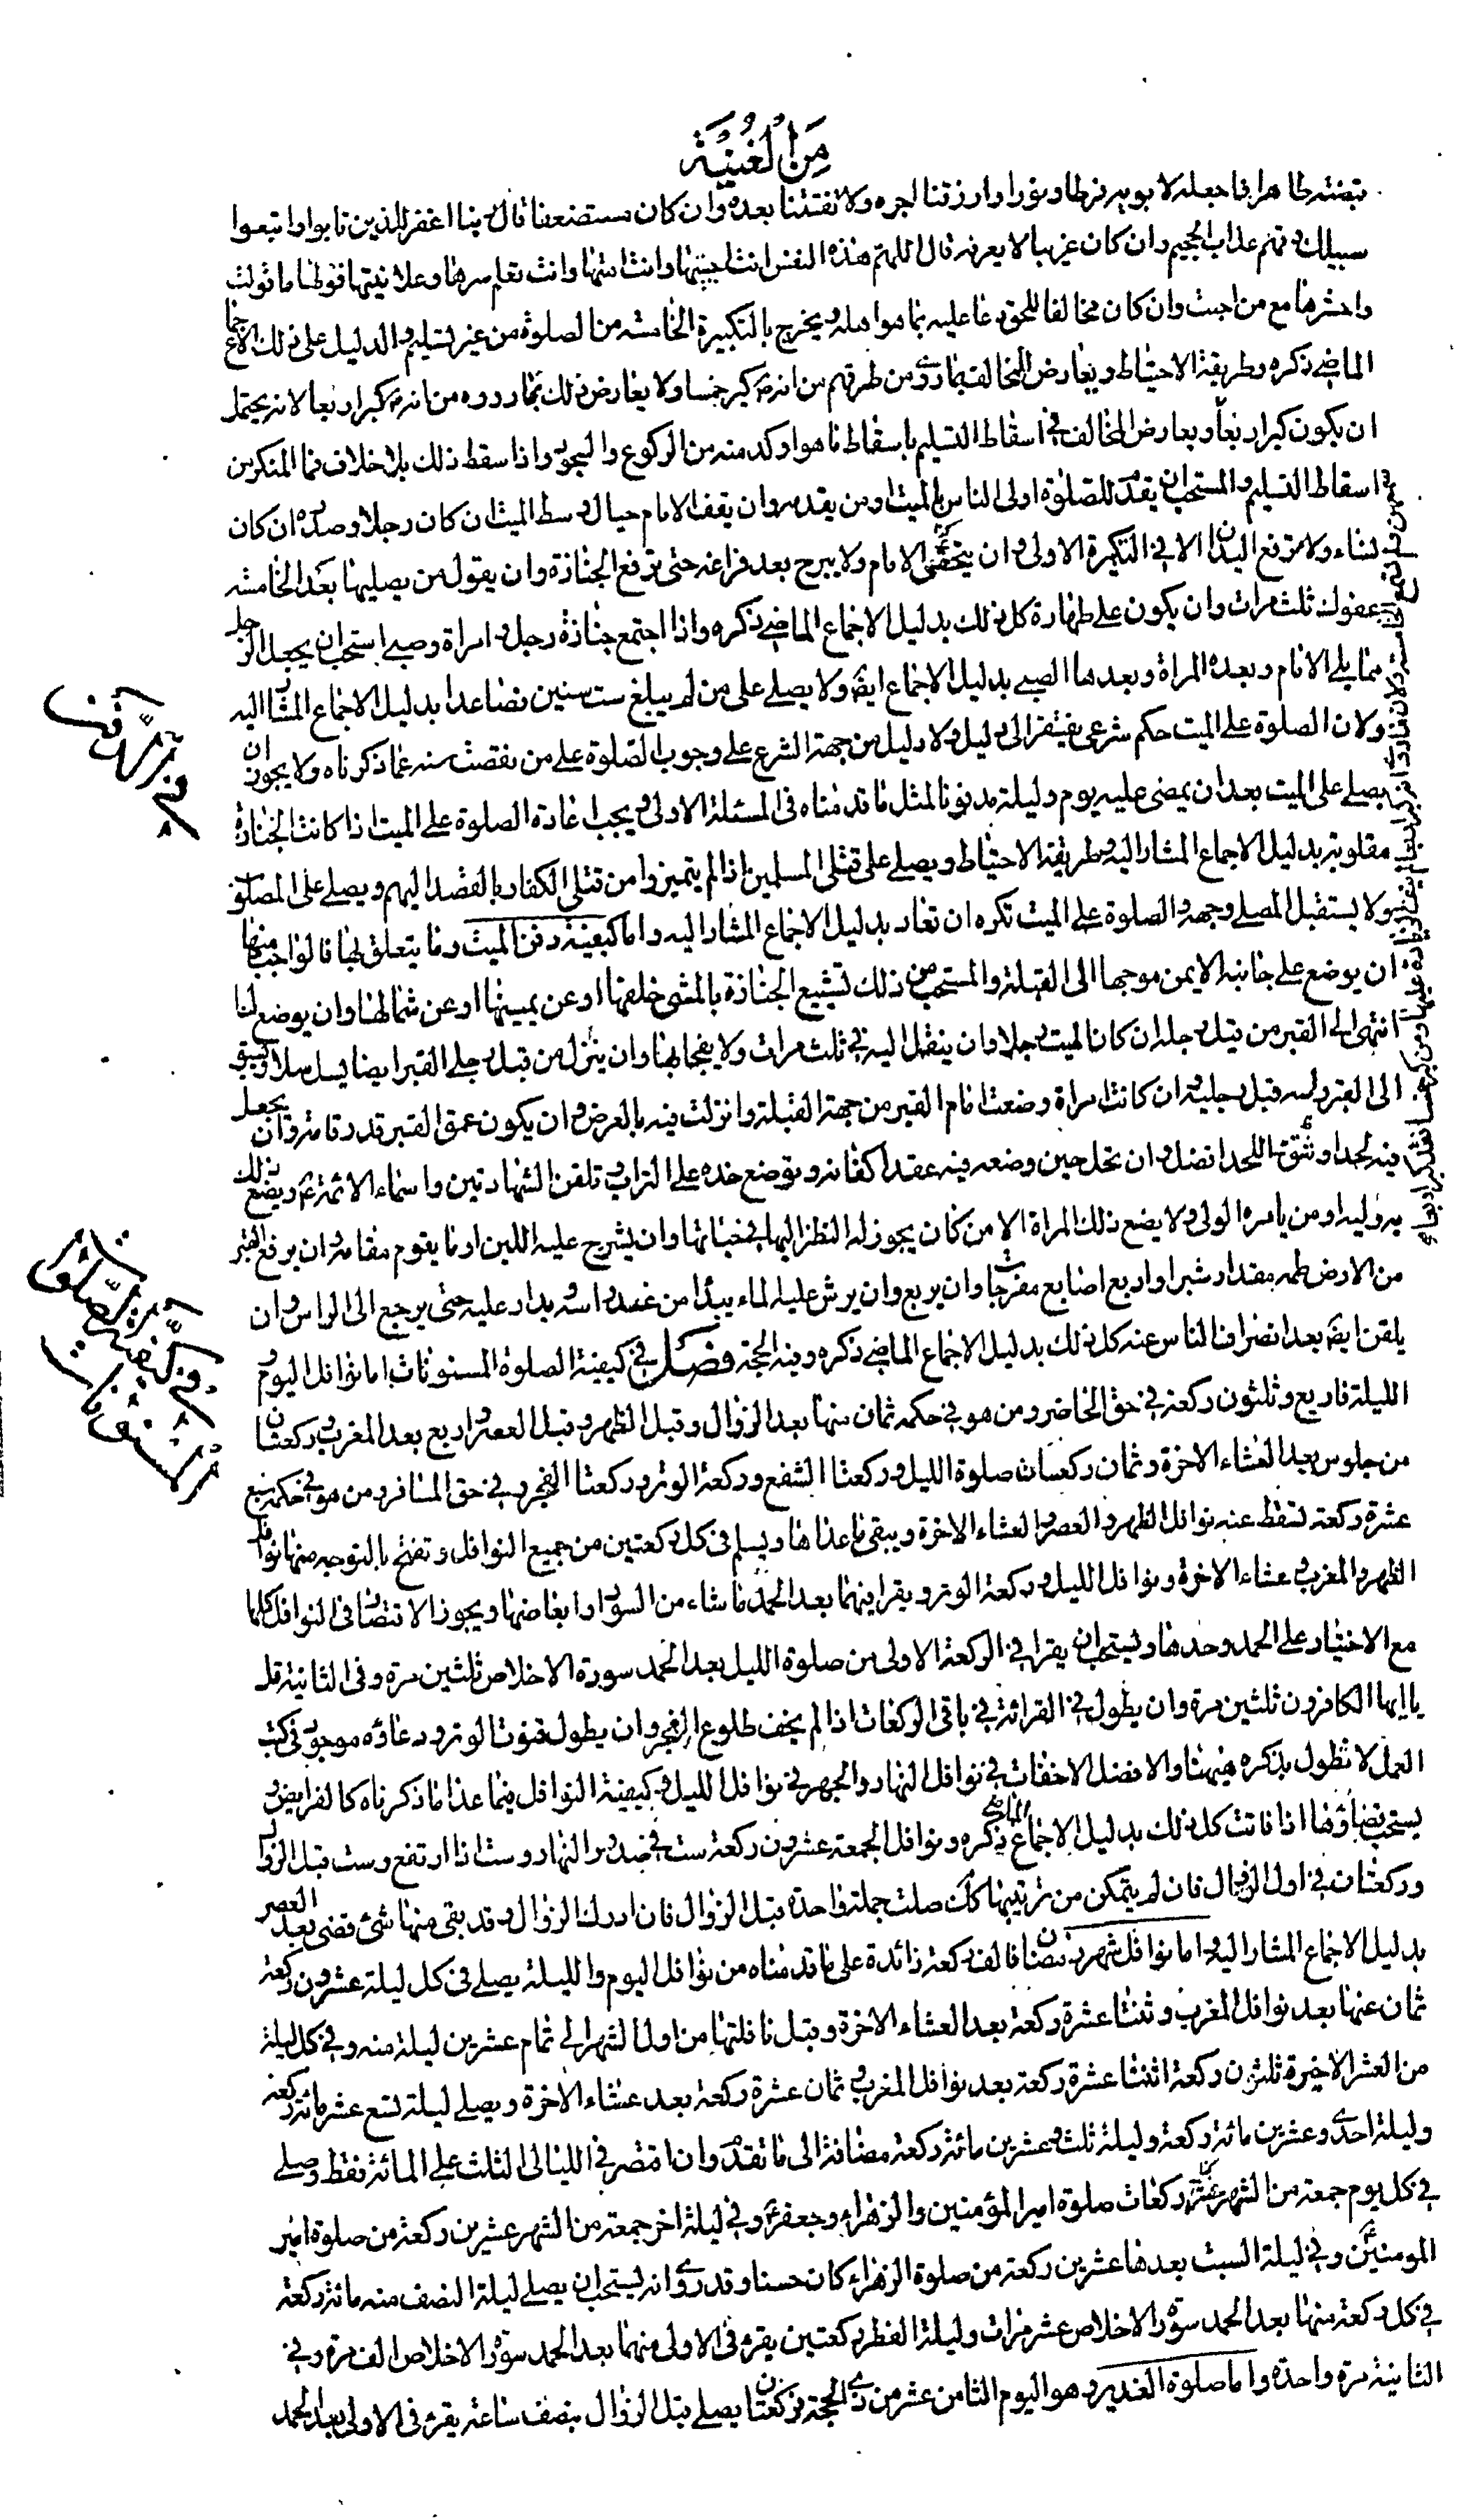 مِنَ الْغُنْيَةِ
قبضته طاهرا فاجعله لابويه فرطا ونورا وارزقنا اجره ولا تفتنا بعده وان كان مستضعفا قال ربنا اغفر للذين تابوا واتبعوا
سبيلك وقهم عذاب الجحيم وان كان غريبا لا يعرفه قال اللهم هذه النفس انت احييتها وانت امتها وانت تعلم سرها وعلانيتها فولها ما تولت
واحشرها مع من احبت وان كان مخالفا للحق دعا عليه بما هو اهله ويخرج بالتكبيرة الخامسة من الصلوة من غير تسليم والدليل على ذلك الاجماع
الماضي ذكره وطريقة الاحتياط ويعارض المخالف بما روى من طرقهم من انه كبر خمسا ولا يعارض ذلك بما رووه من انه كبر اربعا لانه يحتمل
ان يكون كبر اربعا ويعارض المخالف في اسقاط التسليم باسقاط ما هو اوكد منه من الركوع والسجود واذا سقط ذلك بلا خلاف فما المنكر من
اسقاط التسليم والمستحب ان يقدم للصلوة اولى الناس بالميت او من يقدمه وان يقف الامام حيال وسط الميت ان كان رجلا وصدره ان كان
لنساء ولا ترفع اليدان الا في التكبيرة الاولى وان يتحفى الامام ولا يبرح بعد فراغه حتى ترفع الجنازة وان يقول من يصليها بعد الخامسة
عفوك ثلث مرات وان يكون على طهارة كل ذلك بدليل الاجماع الماضي ذكره واذا اجتمع جنازة رجل وامراة وصبى استحب ان يجعل الرجل
مما يلى الامام وبعده المراة وبعدها الصبى بدليل الاجماع ايضا ولا يصلى على من لم يبلغ ست سنين فصاعدا بدليل الاجماع المشار اليه
ولان الصلوة على الميت حكم شرعى يفتقر الى دليل ولا دليل من جهة الشرع على وجوب الصلوة على من نقصت سنه عما ذكرناه ولا يجوز ان
يصلى على الميت بعد ان يمضى عليه يوم وليلة مدفونا لمثل ما قدمناه فى المسئلة الاولى ويجب اعادة الصلوة على الميت اذا كانت الجنازة
مقلوبة بدليل الاجماع المشار اليه وطريقة الاحتياط ويصلى على قتلى المسلمين اذا لم يتميزوا من قتلى الكفار بالقصد اليهم ويصلى على المصلوب
ولا يستقبل المصلى وجهه والصلوة على الميت تكره ان تعاد بدليل الاجماع المشار اليه واما كيفية دفن الميت وما يتعلق بها فالواجب منها
ان يوضع على جانبه الايمن موجها الى القبلة والمستحب من ذلك تشييع الجنازة بالمشى خلفها او عن يمينها او عن شمالها وان يوضع لما
انتهى الى القبر من قبل رجله ان كان الميت رجلا وان ينقل اليه فى ثلث مرات ولا يفجا بها وان ينزل من قبل رجلى القبر ايضا يسل سلا ويسبق
الى القبر راسه قبل رجليه وان كانت امراة وضعت امام القبر من جهة القبلة وانزلت فيه بالعرض وان يكون عمق القبر قدر قامة وان يجعل
فيه لحدا او شق واللحد افضل وان تحل حين وضعه فيه عقد اكفانه ويوضع خده على التراب ويلقن الشهادتين واسماء الائمة ع ويضع ذلك
به وليه او من يامره الولى ولا يضع ذلك المراة الا من كان يجوز له النظر اليها فى حياتها وان يشرج عليه اللبن او ما يقوم مقامه وان يرفع القبر
من الارض طمه مقدار شبر او اربع اصابع مفرجات وان يربع وان يرش عليه الماء يبدأ من عند راسه ويدار عليه حتى يرجع الى الراس وان
يلقن ايضا بعد انصراف الناس عنه كل ذلك بدليل الاجماع الماضي ذكره وفيه الحجة فصل في كيفية الصلوة المسنونات اما نوافل اليوم و
الليلة فاربع وثلثون ركعة في حق الحاضر ومن هو في حكمه ثمان منها بعد الزوال وقبل الظهر وقبل العصر واربع بعد المغرب وركعتان
من جلوس بعد العشاء الاخرة وثمان ركعات صلوة الليل وركعتا الشفع وركعة الوتر وركعتا الفجر وفى حق المسافر ومن هو فى حكمه سبع
عشرة ركعة تسقط عنه نوافل الظهر والعصر والعشاء الاخرة ويبقى ما عداها ويسلم فى كل ركعتين من جميع النوافل وتفتتح بالتوجه منها نوافل
الظهر والمغرب وعشاء الاخرة ونوافل الليل وركعة الوتر ويقرا فيهما بعد الحمد ما شاء من السور او ابعاضها ويجوز الاقتصار فى النوافل كلها
مع الاختيار على الحمد وحدها ويستحب ان يقرا فى الركعة الاولى من صلوة الليل بعد الحمد سورة الاخلاص ثلثين مرة وفى الثانية قل
يا ايها الكافرون ثلثين مرة وان يطول فى القرائة فى باقى الركعات اذا لم يخف طلوع الفجر وان يطول قنوت الوتر ودعاؤه موجود فى كتب
العمل لا نطول بذكره هيهنا والافضل الاخفات فى نوافل النهار والجهر فى نوافل الليل وكيفية النوافل فيما عدا ما ذكرناه كالفرايض و
يستحب قضاؤها اذا فاتت كل ذلك بدليل الاجماع الماضي ذكره ونوافل الجمعة عشرون ركعة ست فى صدر النهار وست اذا ارتفع وست قبل الزوال
وركعتان فى اول الزوال فان لم يتمكن من ترتيبها كك صلت جملة واحدة قبل الزوال فان ادرك الزوال وقد بقى منها شئ قضى بعد العصر
بدليل الاجماع المشار اليه واما نوافل شهر رمضان فالف ركعة زائدة على ما قدمناه من نوافل اليوم والليلة يصلى فى كل ليلة عشرون ركعة
ثمان عنها بعد نوافل المغرب وثنتا عشرة ركعة بعد العشاء الاخرة وقبل نافلتها من اول الشهر الى تمام عشرين ليلة منه وفى كل ليلة
من العشر الاخيرة ثلثون ركعة اثنتا عشرة ركعة بعد نوافل المغرب وثمان عشرة ركعة بعد عشاء الاخرة ويصلى ليلة تسع عشر مائة ركعة
وليلة احدى وعشرين مائة ركعة وليلة ثلث وعشرين مائة ركعة مضافة الى ما تقدم وان اقتصر فى الليالى الثلث على المائة فقط وصلى
فى كل يوم جمعة من الشهر عشر ركعات صلوة امير المؤمنين والزهراء وجعفر ع وفى ليلة اخر جمعة من الشهر عشرين ركعة من صلوة امير
المومنين ع وفى ليلة السبت بعدها عشرين ركعة من صلوة الزهراء كان حسنا وقد روى انه يستحب ان يصلى ليلة النصف منه مائة ركعة
فى كل ركعة منها بعد الحمد سورة الاخلاص عشر مرات وليلة الفطر ركعتين يقرء فى الاولى منهما بعد الحمد سورة الاخلاص الف مرة وفى
الثانية مرة واحدة واما صلوة الغدير وهو اليوم الثامن عشر من ذى الحجة فركعتان يصلى قبل الزوال بنصف ساعة يقرء فى الاولى بعد الحمد